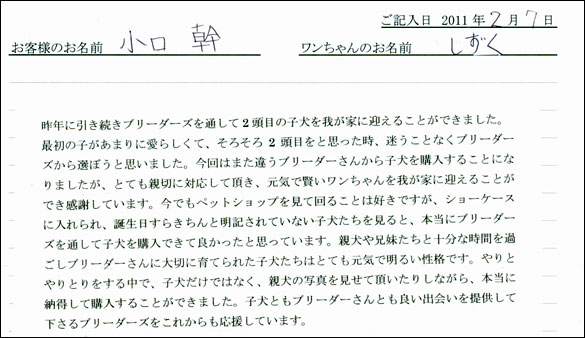 ご記入日 2011年2月7日
お客様のお名前 小口 幹 ワンちゃんのお名前 しずく
昨年に引き続きブリーダーズを通して2頭目の子犬を我が家に迎えることができました。
最初の子があまりに愛らしくて、そろそろ2頭目をと思った時、迷うことなくブリーダー
ズから選ぼうと思いました。今回はまた違うブリーダーさんから子犬を購入することにな
りましたが、とても親切に対応して頂き、元気で賢いワンちゃんを我が家に迎えることが
でき感謝しています。今でもペットショップを見て回ることは好きですが、ショーケース
に入れられ、誕生日すらきちんと明記されていない子犬たちを見ると、本当にブリーダー
ズを通して子犬を購入できて良かったと思っています。親犬や兄妹たちと十分な時間を過
ごしブリーダーさんに大切に育てられた子犬たちはとても元気で明るい性格です。やりと
やりとりをする中で、子犬だけではなく、親犬の写真を見せて頂いたりしながら、本当に
納得して購入することができました。子犬ともブリーダーさんとも良い出会いを提供して
下さるブリーダーズをこれからも応援しています。